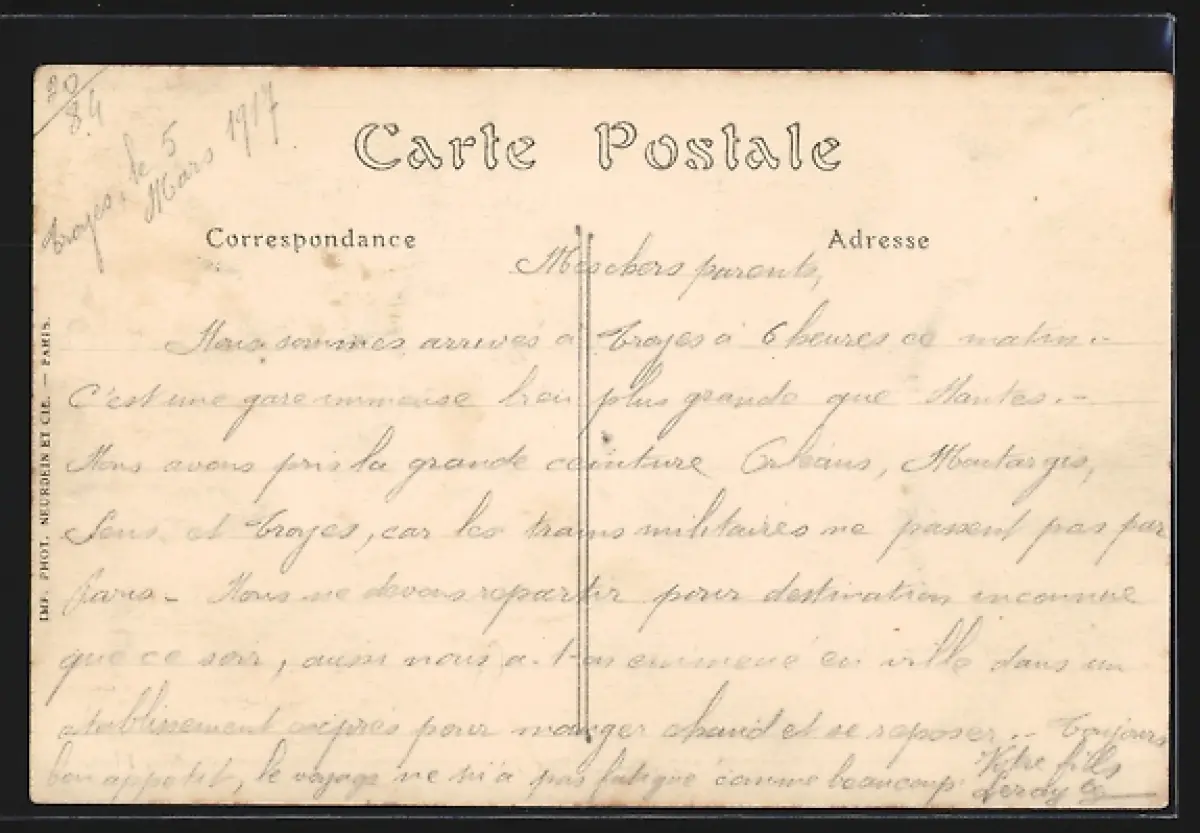 20/84
Troyes, le 5
Mars 1917
Carte Postale
Correspondance
Adresse
Mes chers parents,
Nous sommes arrivés à Troyes à 6 heures ce matin.-
C'est une gare immense bien plus grande que Nantes.-
Nous avons pris la grande ceinture Orléans, Montargis,
Sens et Troyes, car les trains militaires ne passent pas par
Paris - Nous ne devons repartir pour destination inconnue
que ce soir, aussi nous a-t-on emmené en ville dans un
établissement exprès pour manger chaud et se reposer.- Toujours
bon appétit, le voyage ne m'a pas fatigué comme beaucoup
Votre fils
Leroy
IMP. PHOT. NEURDEIN ET CIE. — PARIS.